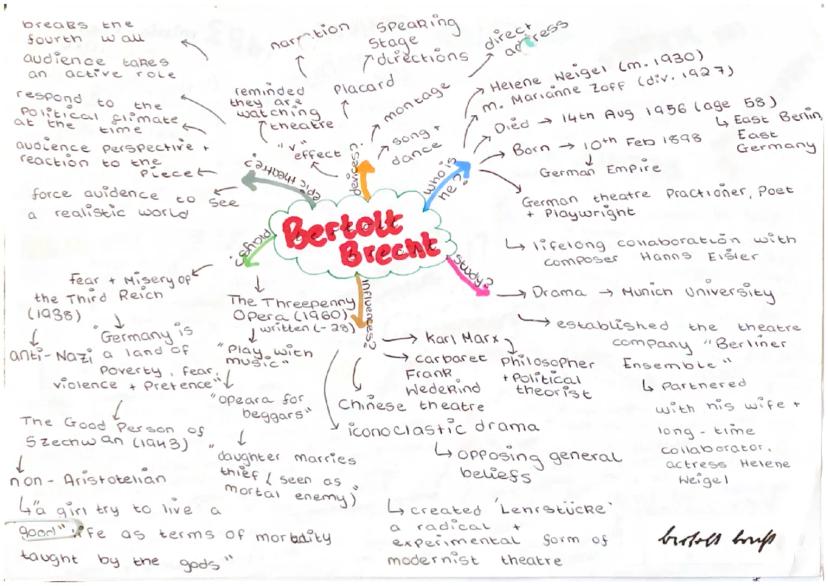 Bertolt
Brecht
epic theatre?
breaks the
fourth wall
audience takes
an active role
respond to the
political climate
at the time
audience perspective +
reaction to the
piece
force auidence to see
a realistic world
devices?
"v"
effect
reminded
they are
watching
theatre
narration
Placard
speaking
stage
directions
montage
direct
address
song +
dance
who is
he?
Helene Weigel (m. 1930)
m. Marianne Zoff (div. 1927)
Died → 14th Aug 1956 (age 58)
↳ East Berlin,
East
Germany
Born → 10th Feb 1898
German Empire
German theatre Practioner, Poet
+ Playwright
↳ lifelong collaboration with
composer Hanns Eisler
study?
→ Drama → Munich University
established the theatre
company "Berliner
Ensemble"
↳ Partnered
with his wife +
long-time
collaborator,
actress Helene
Weigel
influences?
Karl Marx
Philosopher
+ Political
theorist
carbaret
Frank
Wedekind
Chinese theatre
iconoclastic drama
↳ opposing general
beliefs
↳ created 'Lehrstücke'
a radical +
experimental form of
modernist theatre
plays?
Fear + Misery of
the Third Reich
(1938)
anti-Nazi
"Germany is
a land of
Poverty, fear,
violence + Pretence"
The Good Person of
Szechwan (1943)
non-Aristotelian
↳ "a girl try to live a
good" life as terms of morbidity
taught by the gods"
The Threepenny
Opera (1960)
written (-28)
"Play with
music"
"opeara for
beggars"
daughter marries
thief (seen as
mortal enemy)
bertolt brecht